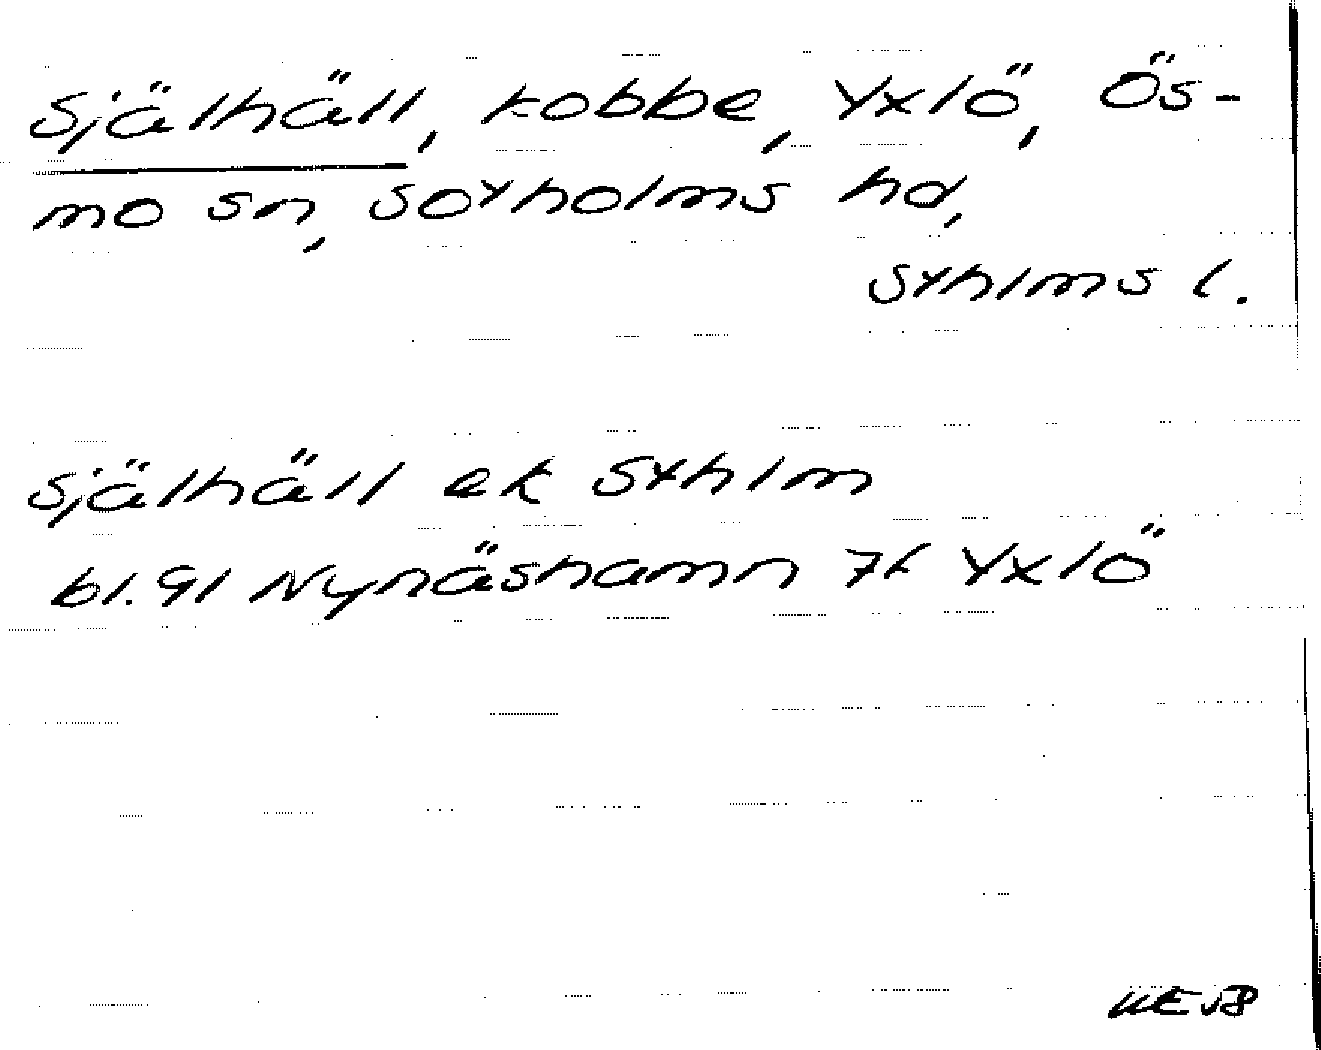 Själhäll, kobbe, Yxlö, Ös-
mo sn, Sotholms hd,
Sthlms l.
Själhäll ek Sthlm
bl. 91 Nynäshamn 7f Yxlö